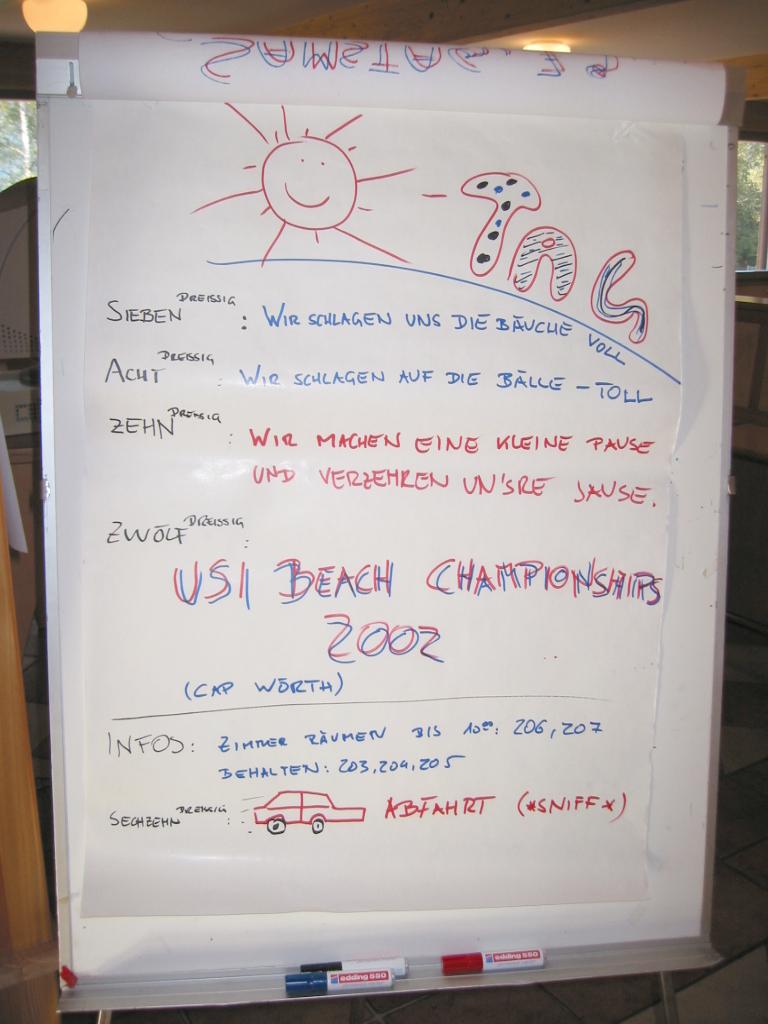 SAMSTAG
- TAG
SIEBEN DREISSIG : WIR SCHLAGEN UNS DIE BÄUCHE VOLL
ACHT DREISSIG : WIR SCHLAGEN AUF DIE BÄLLE - TOLL
ZEHN DREISSIG : WIR MACHEN EINE KLEINE PAUSE
UND VERZEHREN UN'SRE JAUSE.
ZWÖLF DREISSIG :
USI BEACH CHAMPIONSHIPS
2002
(CAP WÖRTH)
INFOS: ZIMMER RÄUMEN BIS 10⁰⁰: 206, 207
BEHALTEN: 203, 204, 205
SECHZEHN DREISSIG : ABFAHRT (*SNIFF*)
edding 550
edding 550